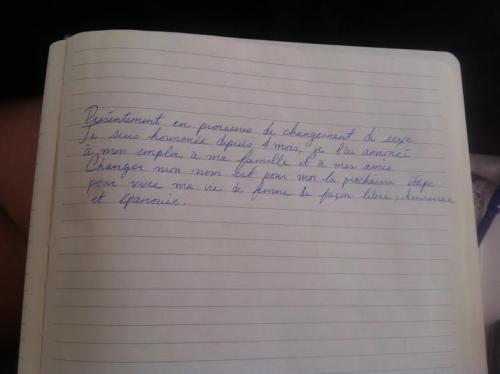 Présentement en processus de changement de sexe
Je suis hormonée depuis 8 mois, je l'ai annoncé
à mon emploi, à ma famille et à mes amis.
Changer mon nom est pour moi la prochaine étape
pour vivre ma vie de femme de façon libre, heureuse
et épanouie.